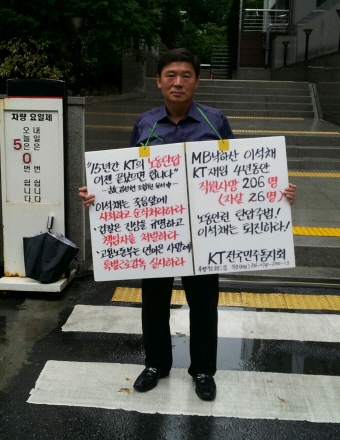 차량 요일제
오늘은
5
번
쉽니다
내일은
0
번
쉽니다
"15년간 KT의 노동탄압
이젠 끝났으면 합니다"
이석채는 죽음앞에
사죄하고 순직처리하라
· 검찰은 진실을 규명하고
책임자를 처벌하라
· 고용노동부는 연이은 사망에
특별근로감독 실시하라
MB낙하산 이석채
KT 재임 4년동안
직원사망 206명
(자살 26명)
노동인권 탄압주범!
이석채는 퇴진하라!
KT전국민주동지회